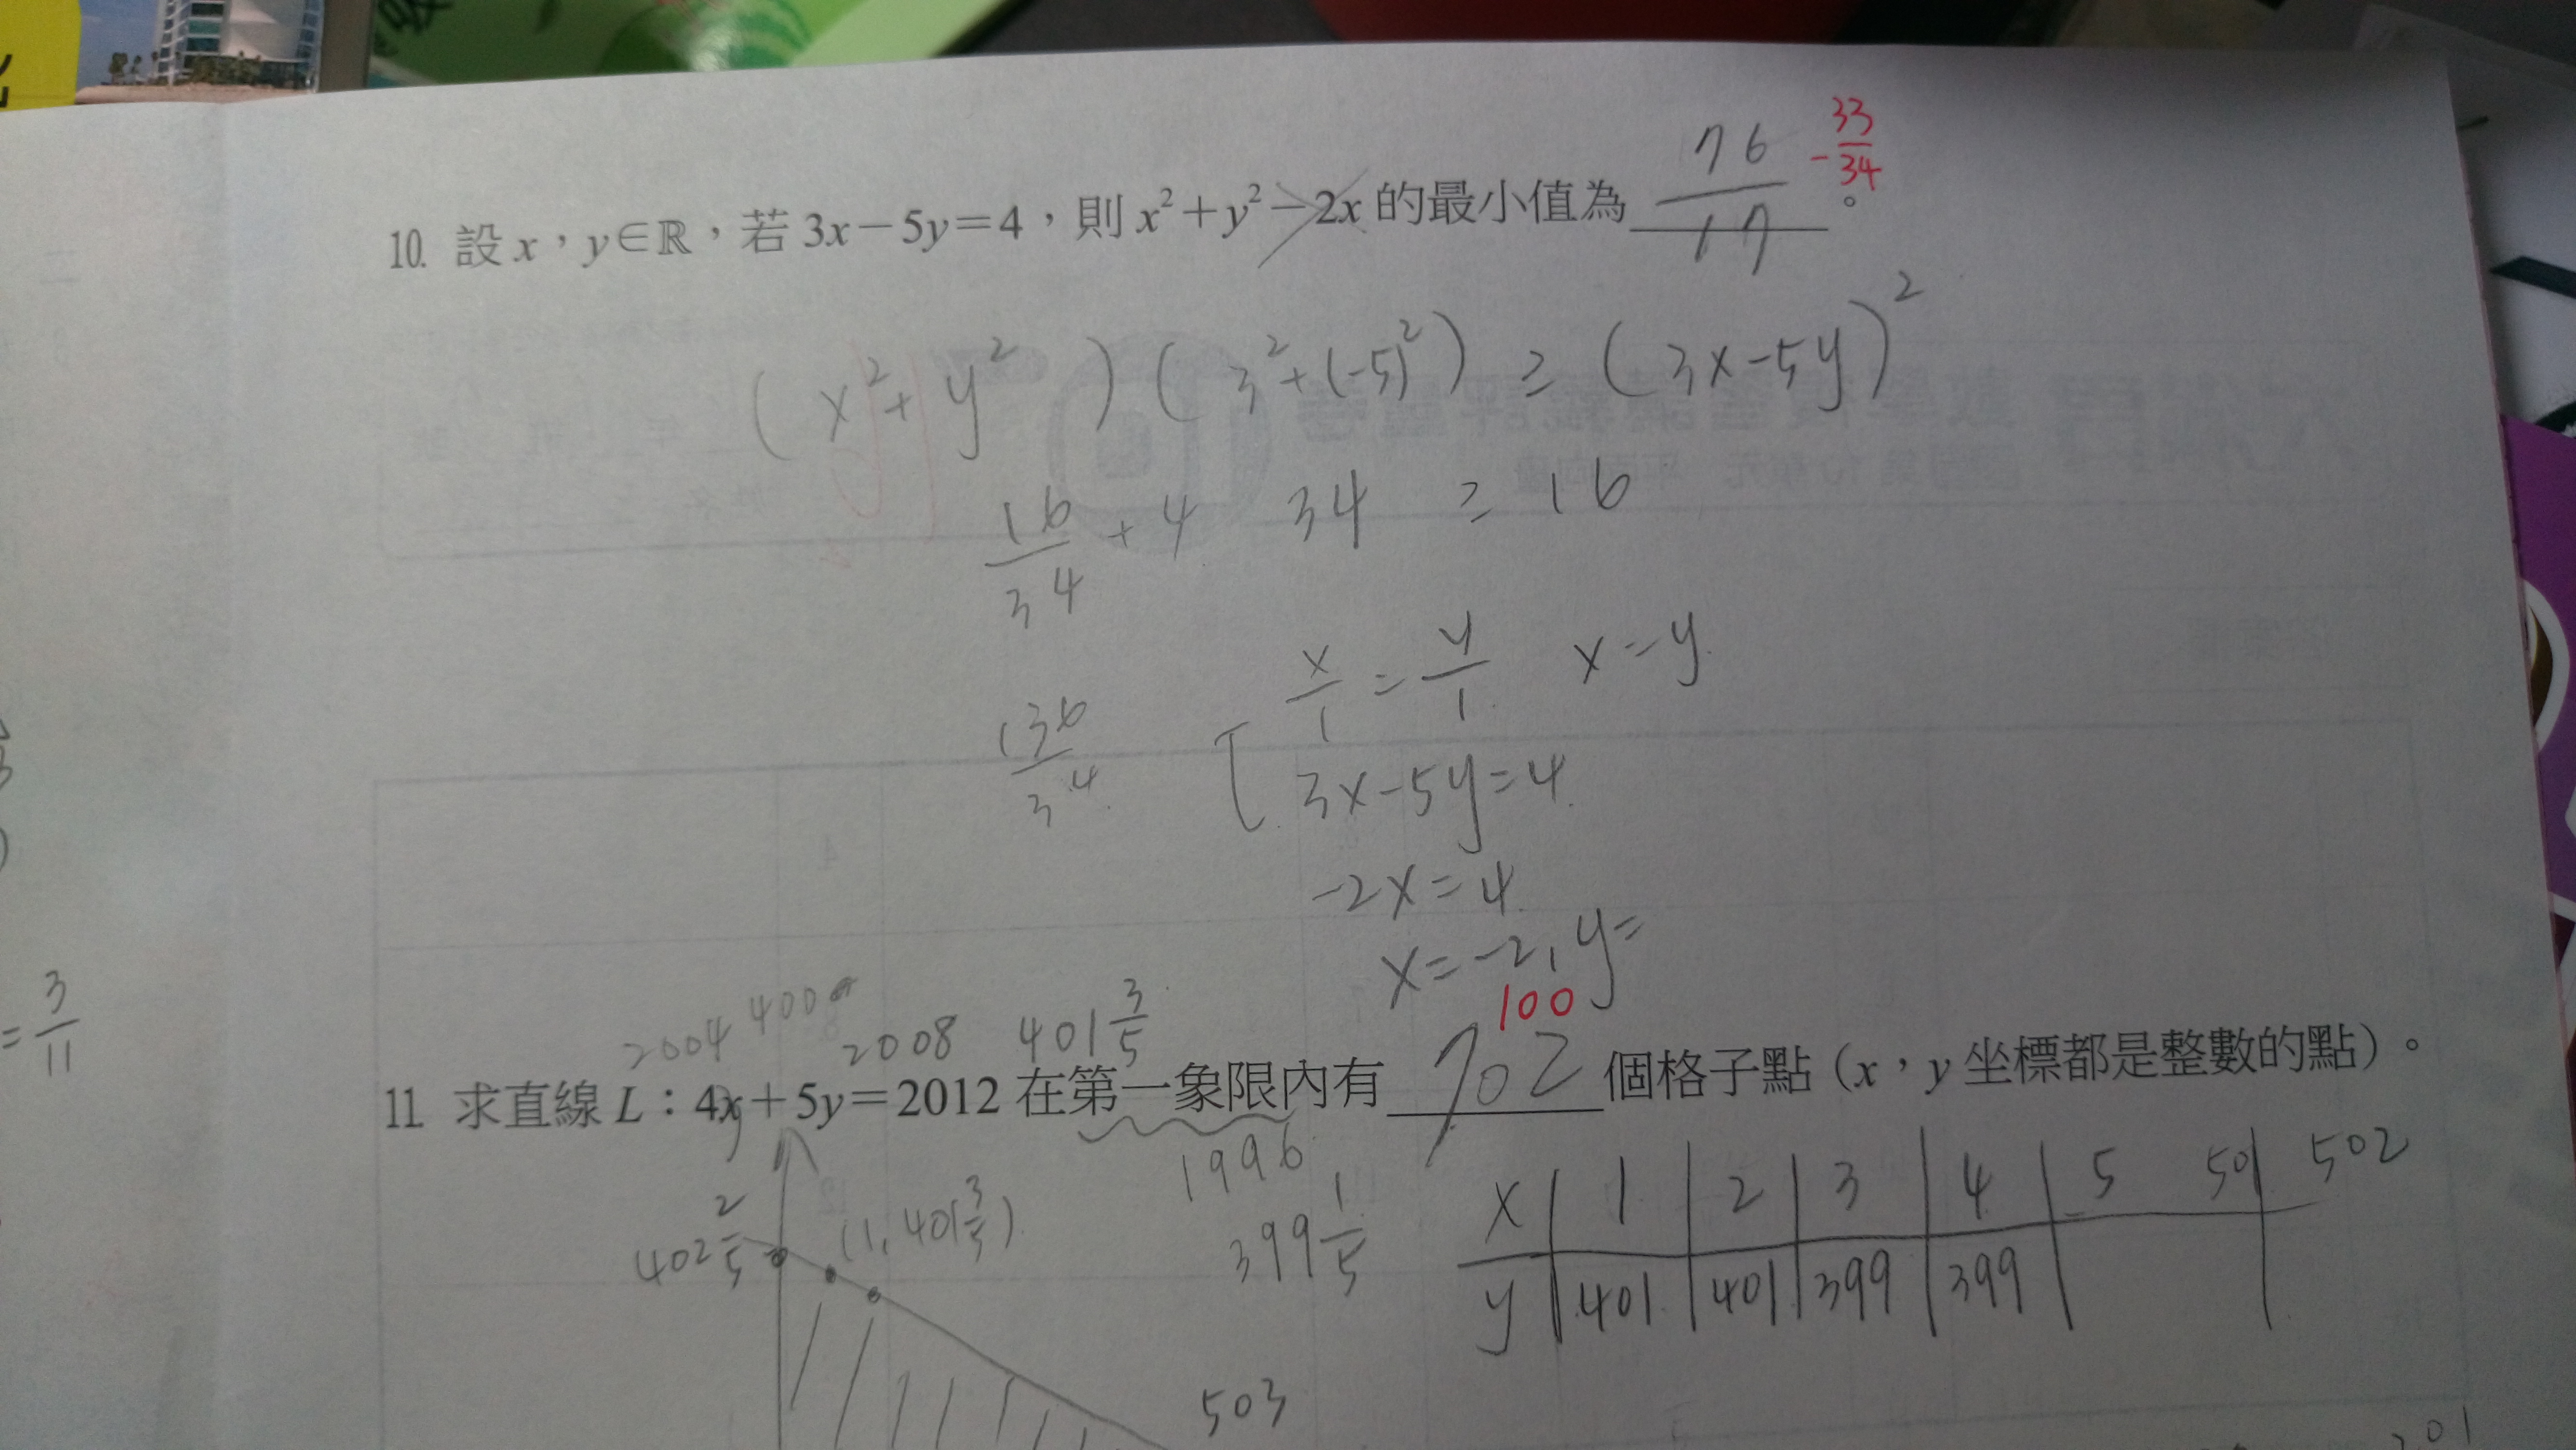 33
76 -—
17 34
10. 設 x，y∈ℝ，若 3x－5y＝4，則 x²＋y²－2x 的最小值為＿＿＿。
(x²+y²)(3²+(-5)²) ≥ (3x-5y)²
16/34 + 4 34 ≥ 16
x/1 = y/1 x=y
136/34 3x-5y=4
-2x=4
x=-2, y=
= 3/11
100
2004 400 2008 401 3/5
11. 求直線 L：4x＋5y＝2012 在第一象限內有 702 個格子點（x，y 坐標都是整數的點）。
y 1996
402 2/5 (1, 401 3/5) 399 1/5
x 1 2 3 4 5 501 502
y 401 401 399 399
503
201